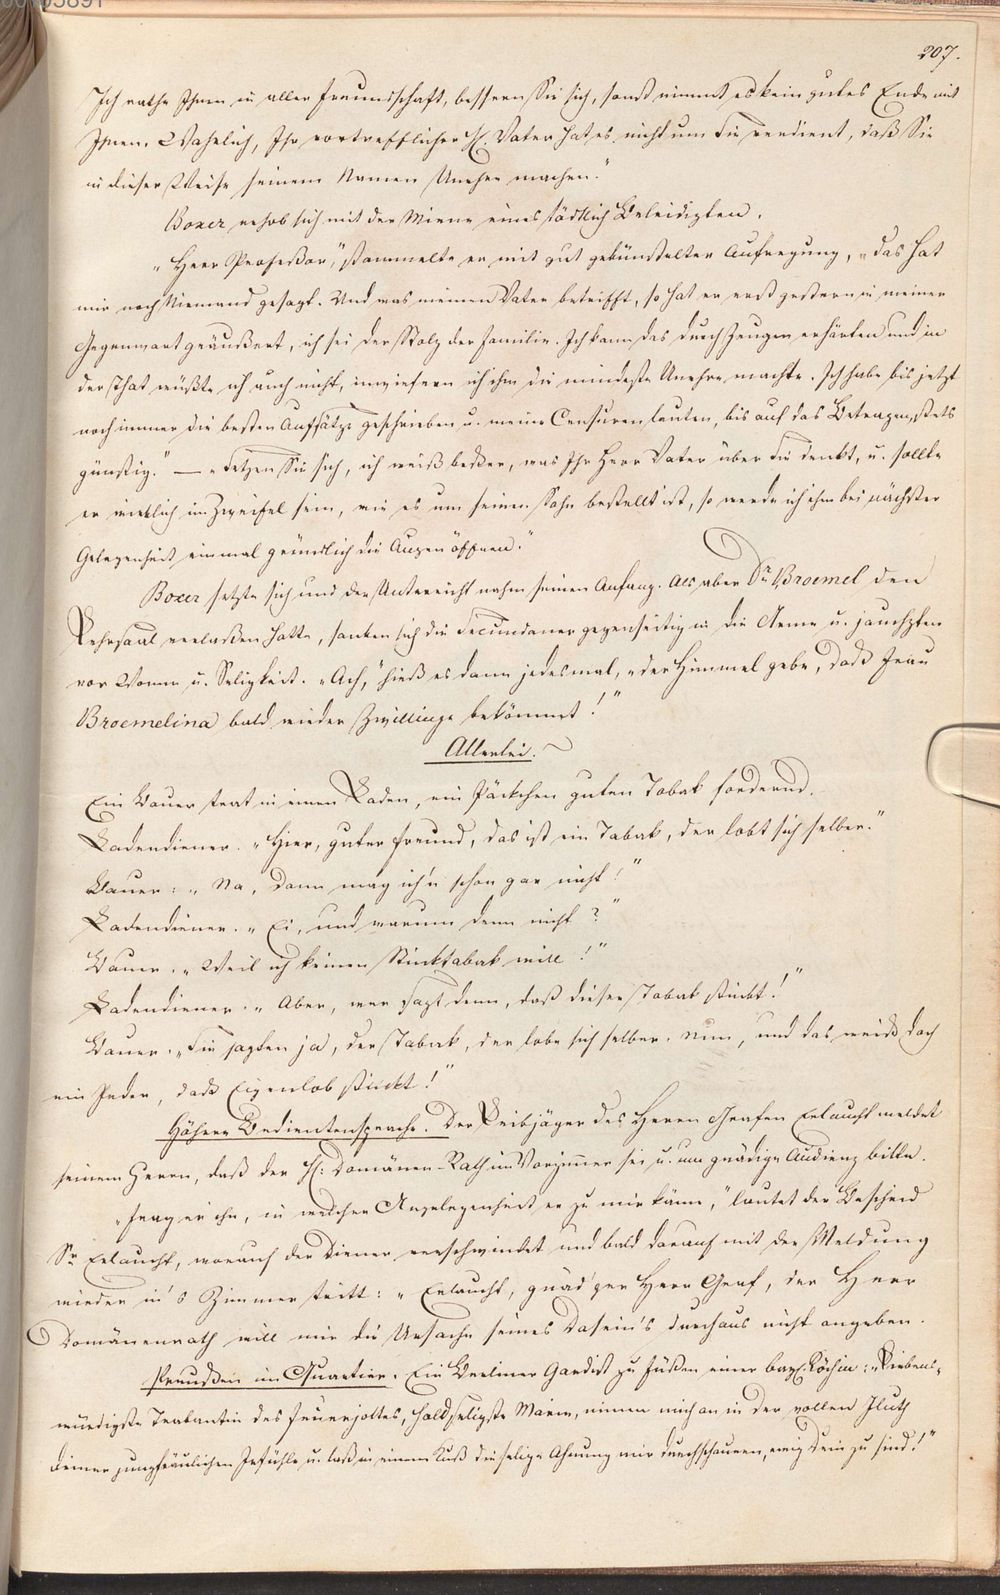 207.
Ich rathe Ihnen in aller Freundschaft, bessern Sie sich, sonst nimmt es kein gutes Ende mit
Ihnen. Wahrlich, Ihr vortrefflicher H. Vater hat es nicht um Sie verdient, daß Sie
in dieser Weise seinem Namen Unehre machen."
Boxer erhob sich mit der Miene eines tödtlich Beleidigten.
"Herr Profeßor," stammelte er mit gut gekünstelter Aufregung, "das hat
mir noch Niemand gesagt. Und was meinen Vater betrifft, so hat er erst gestern in meiner
Gegenwart geäußert, ich sei der Stolz der Familie. Ich kann das durch Zeugen erhärten und in
der That wüßte ich auch nicht, inwiefern ich ihm die mindeste Unehre machte. Ich habe bis jetzt
noch immer die besten Aufsätze geschrieben u. meine Censuren lauten, bis auf das Betragen, stets
günstig." — "Setzen Sie sich, ich weiß beßer, was Ihr Herr Vater über Sie denkt, u. sollte
er wirklich im Zweifel sein, wie es um seinen Sohn bestellt ist, so werde ich ihm bei nächster
Gelegenheit einmal gründlich die Augen öffnen."
Boxer setzte sich und der Unterricht nahm seinen Anfang. Als aber Dr. Broemel den
Lehrsaal verlaßen hatte, sanken sich die Secundaner gegenseitig in die Arme u. jauchzten
vor Wonne u. Seligkeit. "Ach," hieß es dann jedesmal, "der Himmel gebe, daß Frau
Broemelina bald wieder Zwillinge bekömmt!"
Allerlei.
Ein Bauer trat in einen Laden, ein Päckchen guten Tobak fordernd.
Ladendiener. "Hier, guter Freund, das ist ein Tabak, der lobt sich selber."
Bauer: "Na, dann mag ich'n schon gar nicht!"
Ladendiener. "Ei, und warum denn nicht?"
Bauer. "Weil ich keinen Stinktabak will!"
Ladendiener. "Aber, wer sagt denn, daß dieser Tabak stinkt!"
Bauer. "Sie sagten ja, der Tabak, der lobe sich selber. Nun, und das weiß doch
ein Jeder, daß Eigenlob stinkt!"
Höhere Bedientensprache. Der Leibjäger des Herrn Grafen Erlaucht meldet
seinem Herrn, daß der H. Domänen-Rath im Vorzimmer sei u. um gnädige Audienz bitte.
"Frag er ihn, in welcher Angelegenheit er zu mir käme," lautet der Bescheid
Sr. Erlaucht, worauf der Diener verschwindet und bald darauf mit der Meldung
wieder in's Zimmer tritt: "Erlaucht, gnäd'ger Herr Graf, der Herr
Domänenrath will mir die Ursache seines Dasein's durchaus nicht angeben.
Preußen im Quartier. Ein Berliner Gardist zu Füßen einer bayr. Köchin: "Liebens-
würdigste Trabantin des Feuerjottes, holdseligste Maren, nimm mich an in der vollen Jluth
deiner jungfräulichen Jefühle u. laß in einem Kuß die selige Ahnung mir durchschauern, ewig Dein zu sind!"